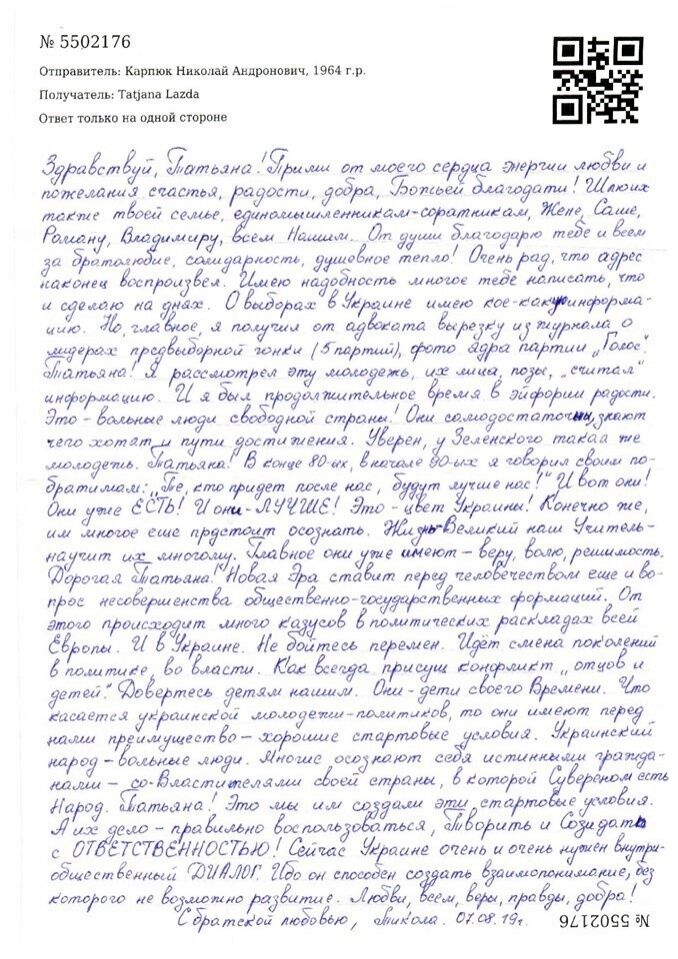 № 5502176
Отправитель: Карпюк Николай Андронович, 1964 г.р.
Получатель: Tatjana Lazda
Ответ только на одной стороне
Здравствуй, Татьяна! Прими от моего сердца энергии любви и
пожелания счастья, радости, добра, Божьей благодати! Шлю их
также твоей семье, единомышленникам-соратникам, Жене, Саше,
Роману, Владимиру, всем Нашим. От души благодарю тебе и всем
за братолюбие, солидарность, душевное тепло! Очень рад, что адрес
наконец воспроизвел. Имею надобность многое тебе написать, что
и сделаю на днях. О выборах в Украине имею кое-какую информа-
цию. Но, главное, я получил от адвоката вырезку из журнала о
лидерах предвыборной гонки (5 партий), фото ядра партии „Голос".
Татьяна! Я рассмотрел эту молодежь, их лица, позы, „считал"
информацию. И я был продолжительное время в эйфории радости.
Это - вольные люди свободной страны! Они самодостаточны, знают
чего хотят и пути достижения. Уверен, у Зеленского такая же
молодежь. Татьяна! В конце 80-ых, в начале 90-ых я говорил своим по-
братимам: „Те, кто придет после нас, будут лучше нас!" И вот они!
Они уже ЕСТЬ! И они - ЛУЧШЕ! Это - цвет Украины! Конечно же,
им многое еще прдстоит осознать. Жизнь - Великий наш Учитель -
научит их многому. Главное они уже имеют - веру, волю, решимость.
Дорогая Татьяна! Новая Эра ставит перед человечеством еще и во-
прос несовершенства общественно-государственных формаций. От
этого происходит много казусов в политических раскладах всей
Европы. И в Украине. Не бойтесь перемен. Идёт смена поколений
в политике, во власти. Как всегда присущ конфликт „отцов и
детей". Довертесь детям нашим. Они - дети своего Времени. Что
касается украинской молодежи-политиков, то они имеют перед
нами преимущество - хорошие стартовые условия. Украинский
народ - вольные люди. Многие осознают себя истинными гражда-
нами - со-Властителями своей страны, в которой Суверсном есть
Народ. Татьяна! Это мы им создали эти стартовые условия.
А их дело - правильно воспользоваться, Творить и Созидать
с ОТВЕТСТВЕННОСТЬЮ! Сейчас Украине очень и очень нужен внутри-
общественный ДИАЛОГ. Ибо он способен создать взаимопонимание, без
которого не возможно развитие. Любви, всем, веры, правды, добра!
С братской любовью, Микола. 07.08.19г.
№ 5502176